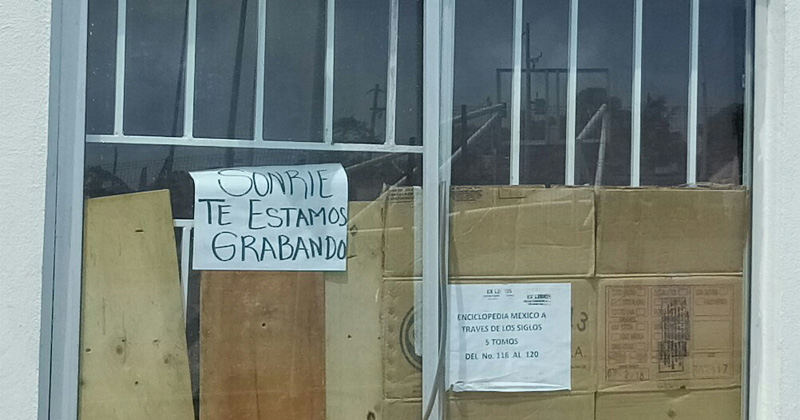 SONRIE
TE ESTAMOS
GRABANDO
EX LIBRIS
EX LIBRIS
ENCICLOPEDIA MEXICO A
TRAVES DE LOS SIGLOS
5 TOMOS
DEL No. 116 AL 120